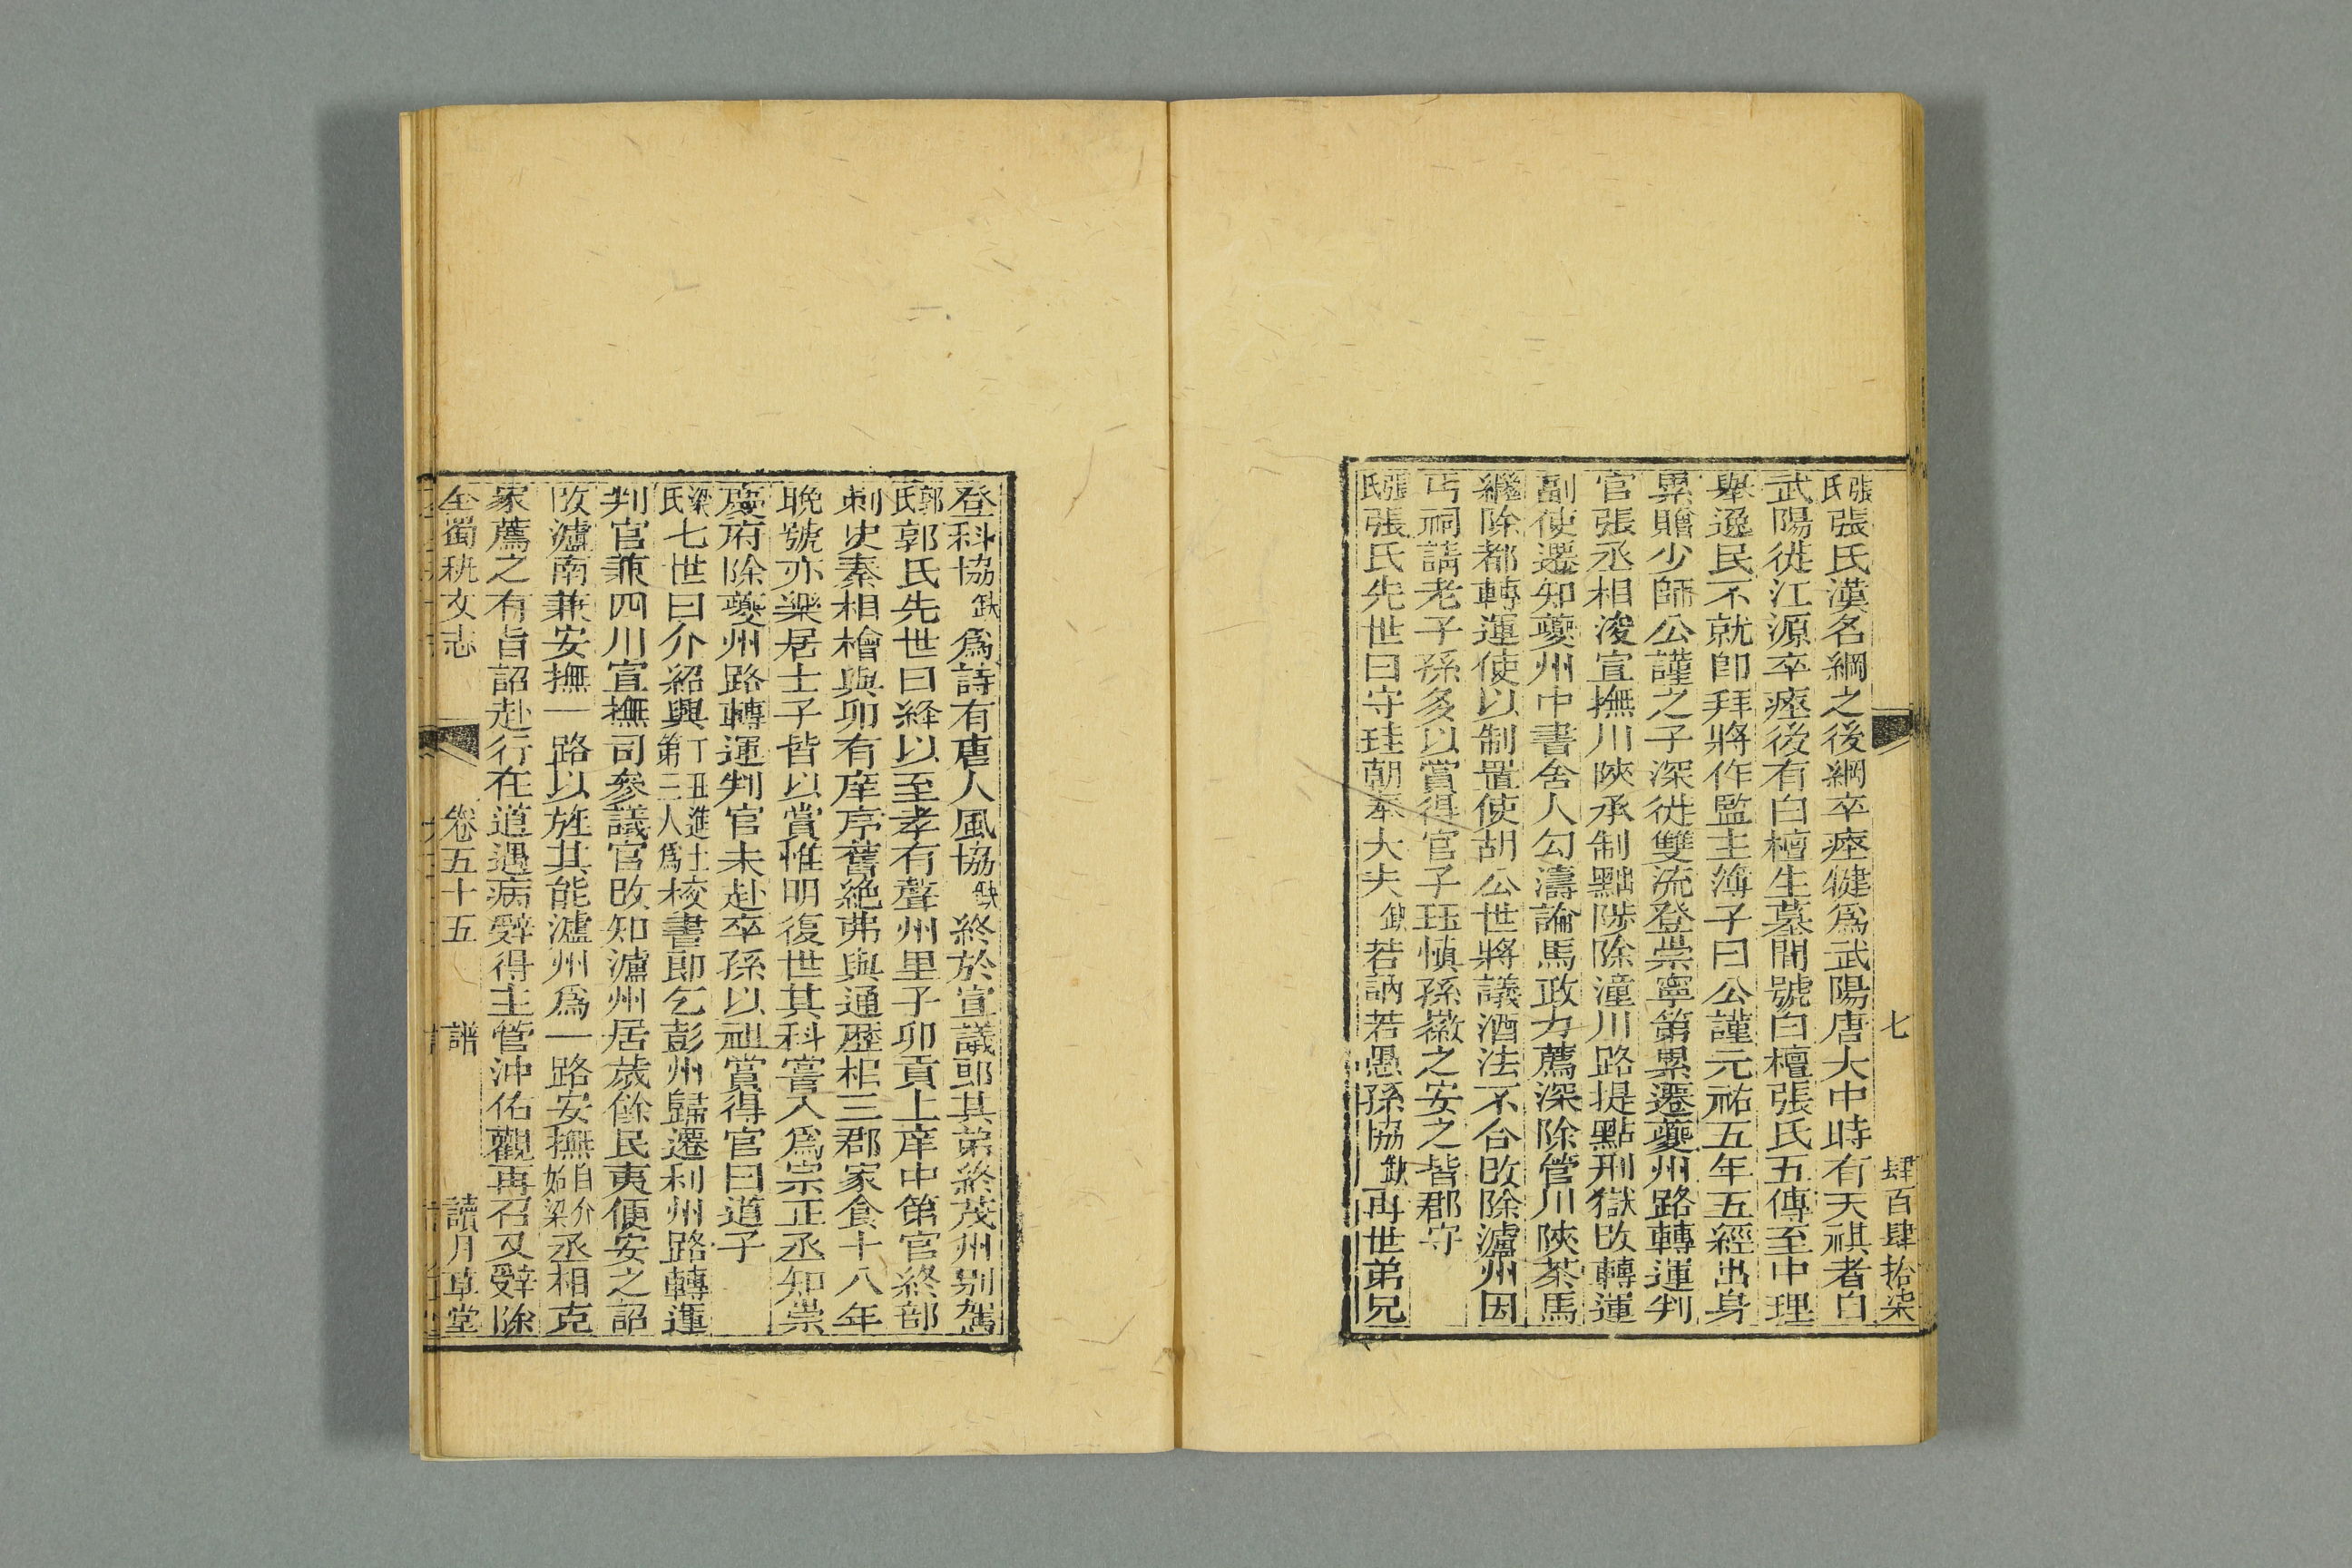 七 肆百肆拾柒
張氏張氏漢名綱之後綱卒瘞犍爲武陽唐大中時有天祺者自
武陽徙江源卒瘞後有白檀生墓間號白檀張氏五傳至中理
舉逸民不就卽拜將作監主簿子曰公謹元祐五年五經出身
累贈少師公謹之子深徙雙流登崇寧第累遷夔州路轉運判
官張丞相浚宣撫川陝承制黜陟除潼川路提點刑獄改轉運
副使遷知夔州中書舍人勾濤論馬政力薦深除管川陝茶馬
繼除都轉運使以制置使胡公世將議酒法不合改除瀘州因
丐祠講老子孫多以賞得官子珏慎孫徽之安之皆郡守
張氏張氏先世曰守珪朝奉大夫缺若訥若愚孫協缺再世弟兄
登科協缺爲詩有唐人風協缺終於宣議郎其弟終茂州别駕
郭氏郭氏先世曰絳以至孝有聲州里子卯貢上庠中第官終部
刺史秦相檜與卯有庠序舊絶弗與通歷柜三郡家食十八年
晚號亦樂居士子皆以賞惟明復世其科嘗入爲宗正丞知崇
慶府除夔州路轉運判官未赴卒孫以祖賞得官曰道子
梁氏七世曰介紹興丁丑進士第三人爲校書郎乞彭州歸遷利州路轉運
判官兼四川宣撫司參議官改知瀘州居歲餘民夷便安之詔
改瀘南兼安撫一路以旌其能瀘州爲一路安撫自介始梁丞相克
家薦之有旨詔赴行在道遇病辭得主管沖佑觀再召又辭除
全蜀秇文志 卷五十五 譜 讀月草堂